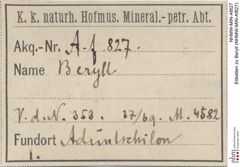 K. k. naturh. Hofmus. Mineral.-petr. Abt.
Akq.-Nr. A.f. 827.
Name Beryll
V. d. N. 353. 37/69. M. 4582
Fundort Aduntschilon
1.
Etiketten zu Beryll (NHMW-MIN-Af827)
NHMW-MIN-Af827